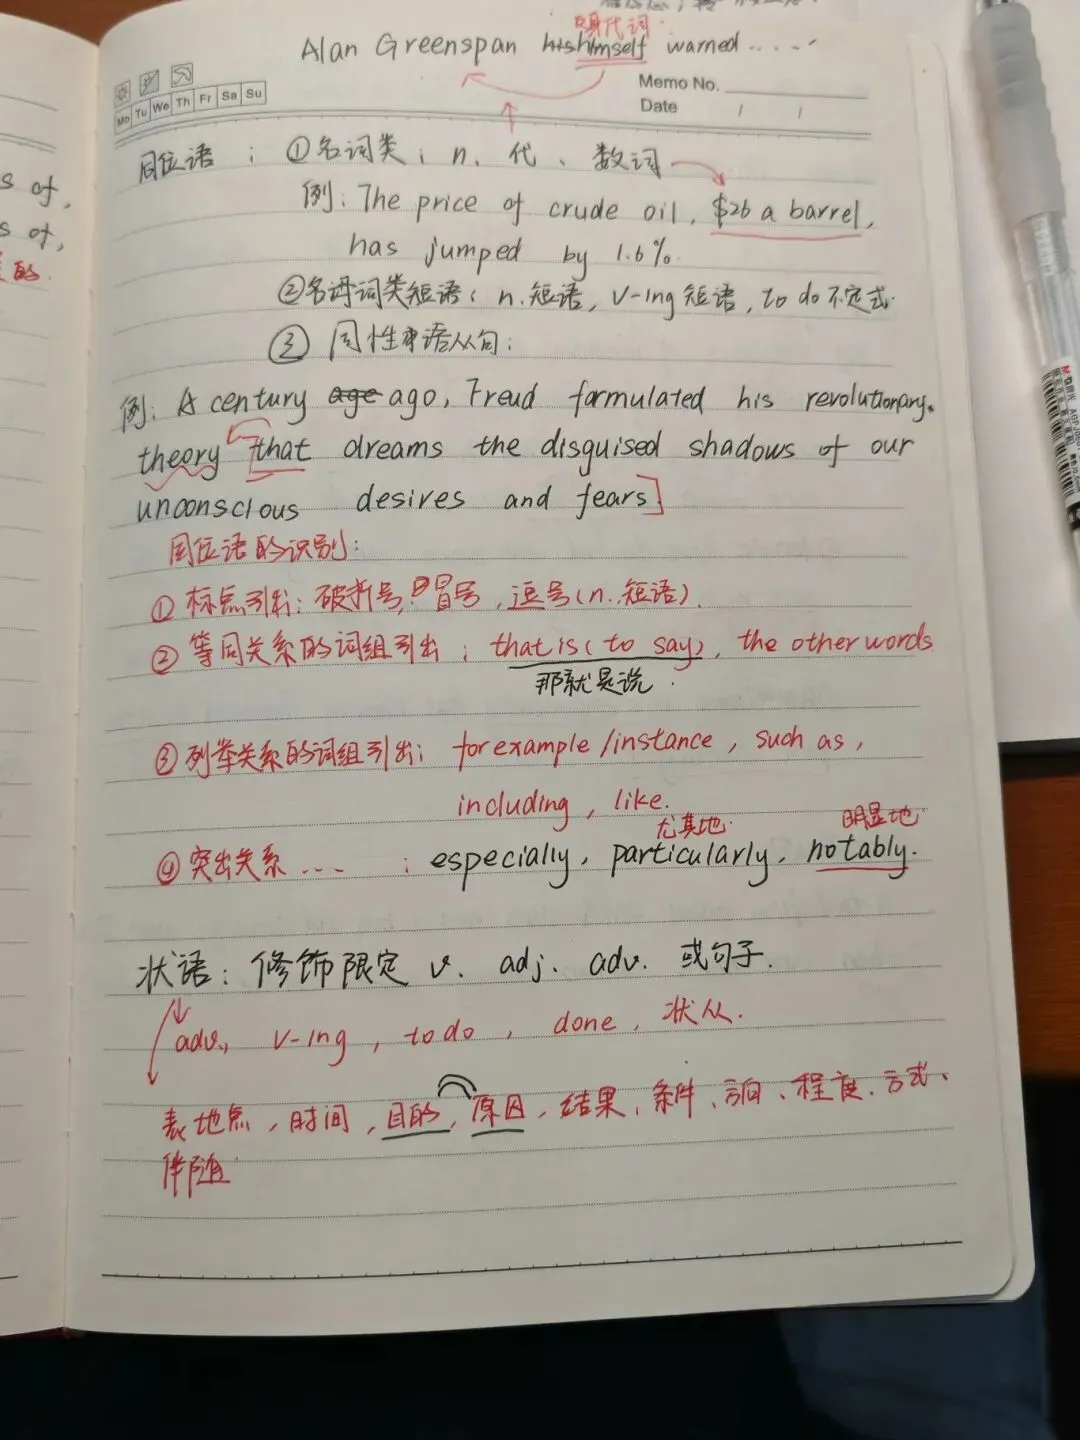 Alan Greenspan himself warned.....
Memo No.
Mo Tu We Th Fr Sa Su
Date / /
同位语: ①名词类: n. 代、数词
例: The price of crude oil, $26 a barrel,
has jumped by 1.6%.
②名词类短语: n.短语, v-ing短语, to do不定式.
③ 同位语从句:
例: A century age ago, Freud formulated his revolutionary
theory [that dreams the disguised shadows of our
unconscious desires and fears]
同位语的识别:
①标点引出: 破折号, 冒号, 逗号(n.短语).
②等同关系的词组引出: that is (to say), the other words
那就是说.
③列举关系的词组引出: for example/instance, such as,
including, like.
尤其地. 明显地.
④突出关系...: especially, particularly, notably.
状语: 修饰限定 v. adj. adv. 或句子.
adv., v-ing, to do, done, 状从.
表地点, 时间, 目的, 原因, 结果、条件、方向、程度、方式、
伴随.
s of,
s of,
的.